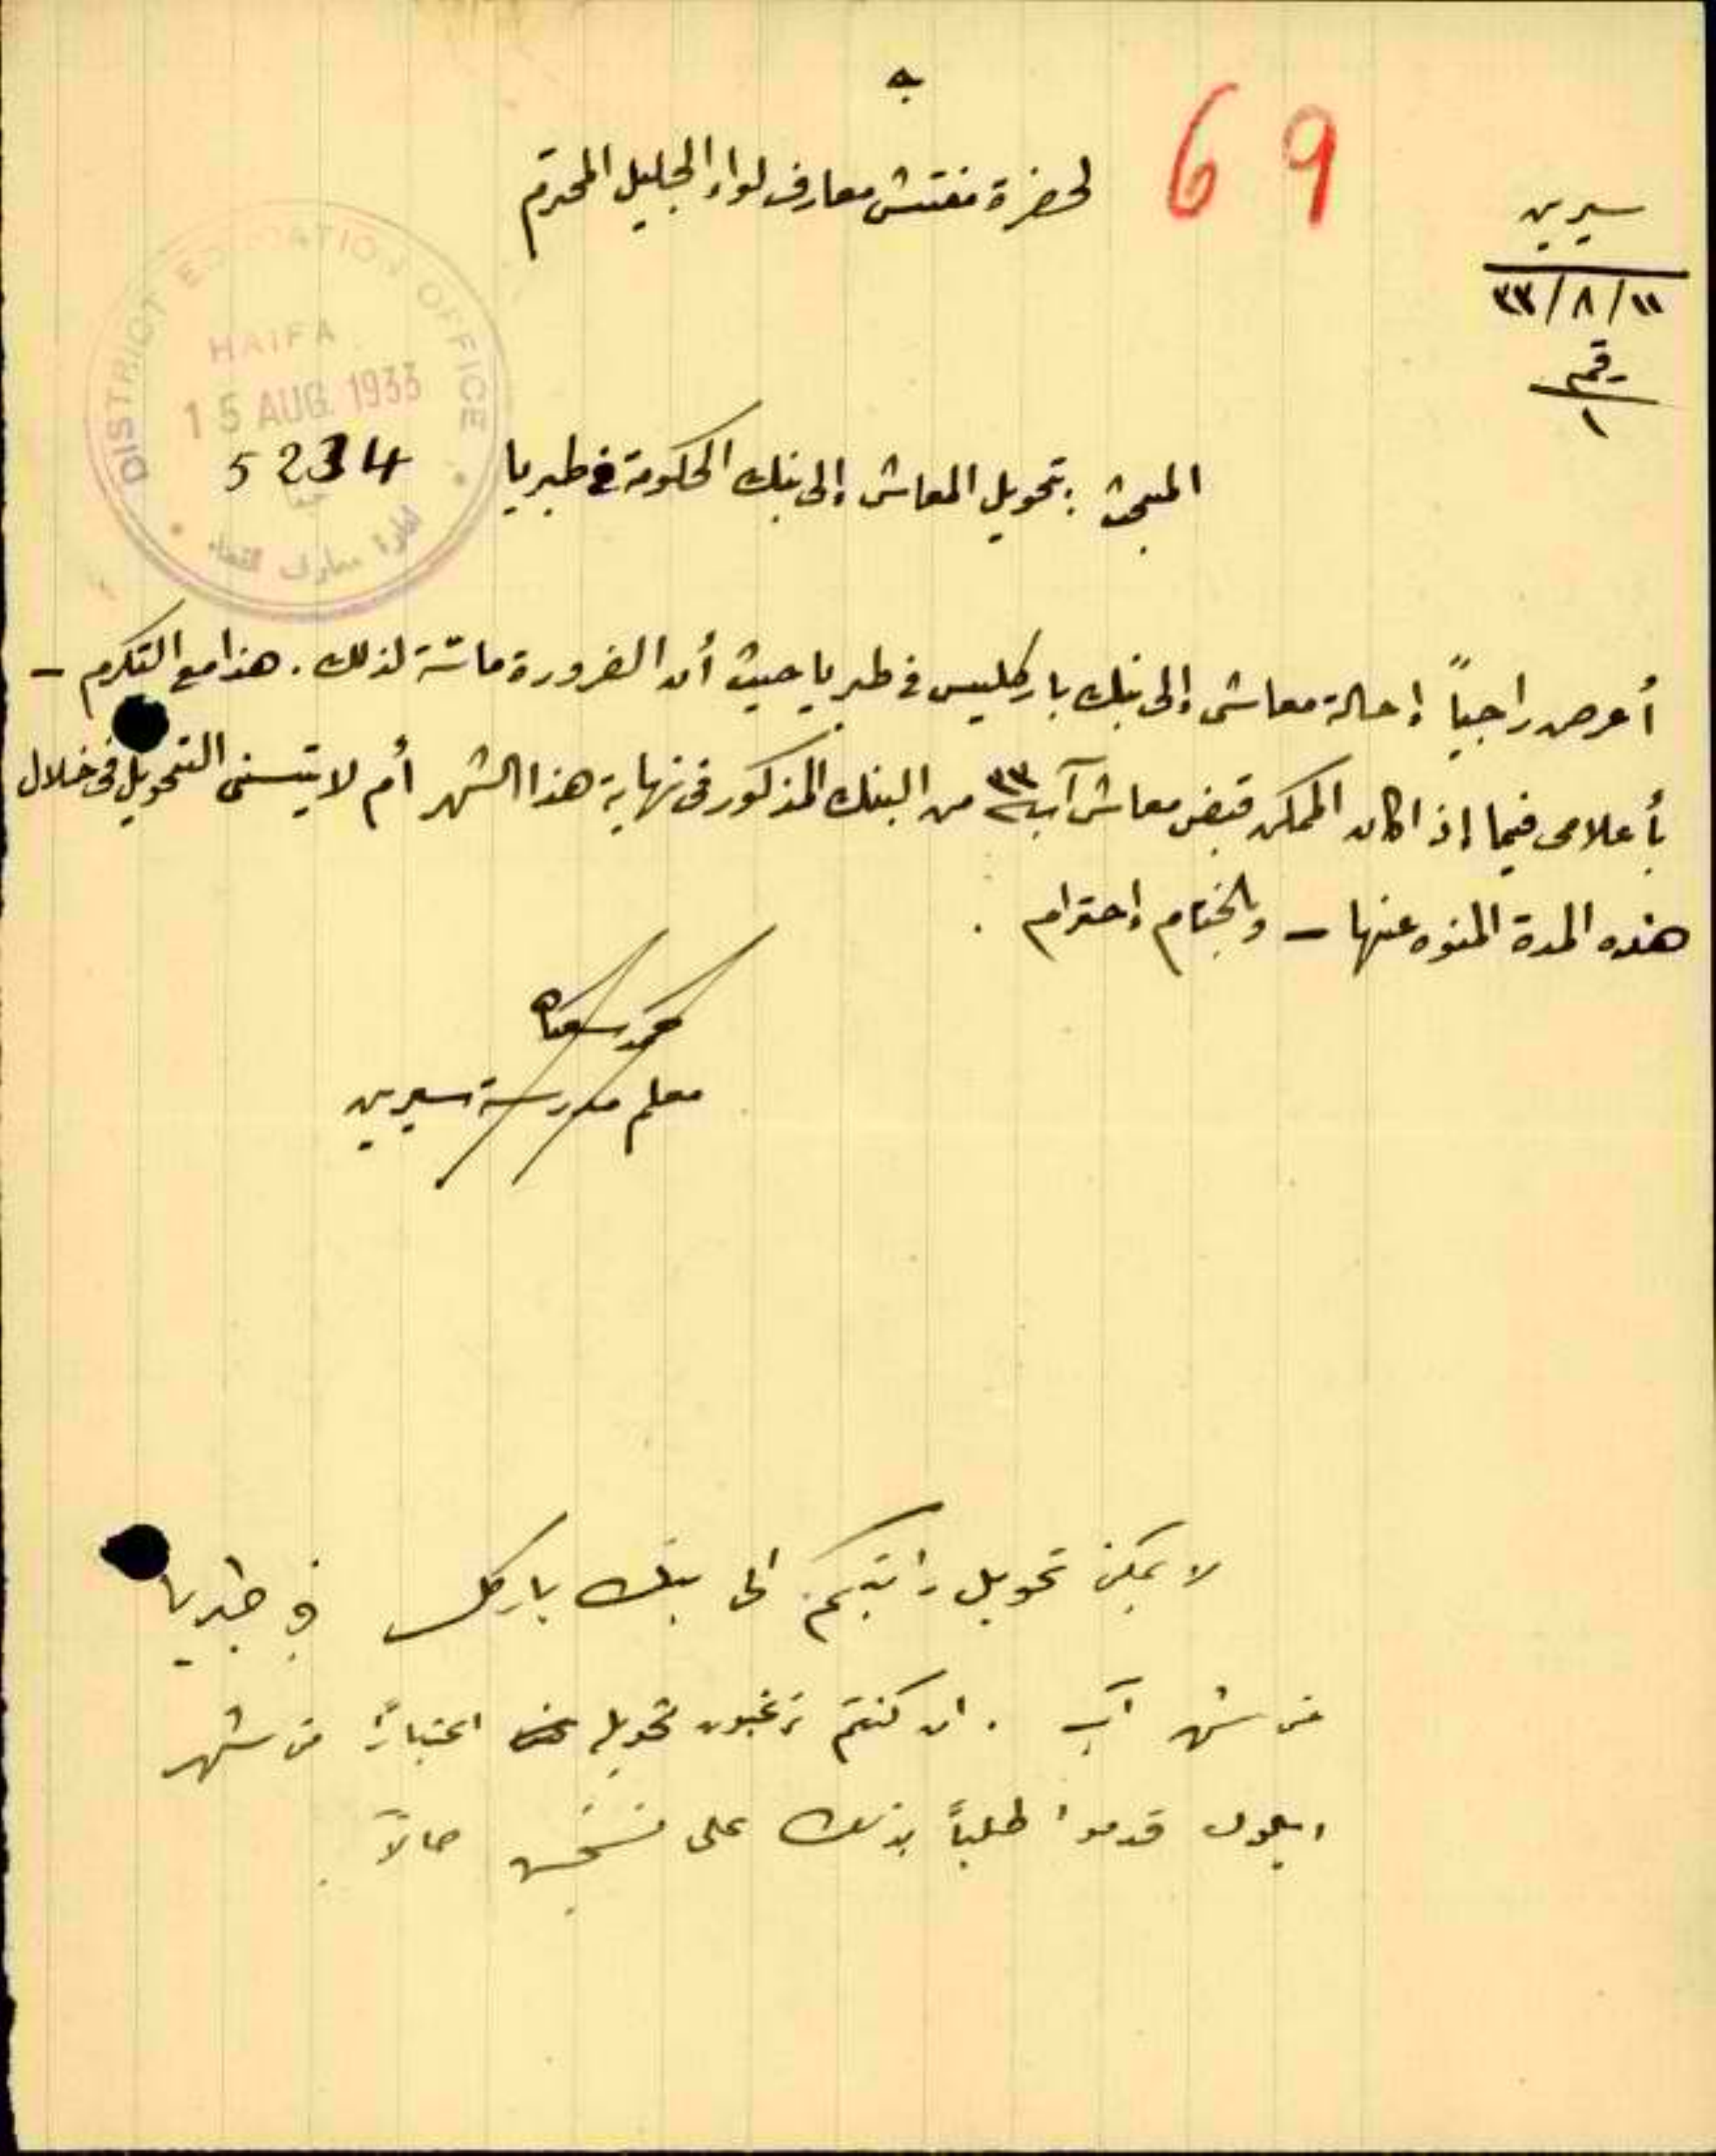 69
سيرين
١١/٨/٣٣
رقم
١
لحضرة مفتش معارف لواء الجليل المحترم
DISTRICT EDUCATION OFFICE
HAIFA
15 AUG. 1933
5234
ادارة معارف القضاء
المبحث : تحويل المعاش إلى بنك الحكومة في طبريا
أعرض راجياً إحالة معاشي إلى بنك باركليس في طبريا حيث أن الضرورة ماسة لذلك . هذا مع التكرم –
بأعلامي فيما إذا كان الممكن قبض معاش آب ٣٣ من البنك المذكور في نهاية هذا الشهر أم لا يتسنى التحويل في خلال
هذه المدة المنوه عنها – والختام إحترام .
محمد
معلم مدرسة سيرين
لا يمكن تحويل راتبكم الى بنك باركلس في طبريا
من شهر آب . ان كنتم ترغبون تحويله اعتباراً من شهر
ايلول قدموا طلباً بذلك على نسختين حالاً .